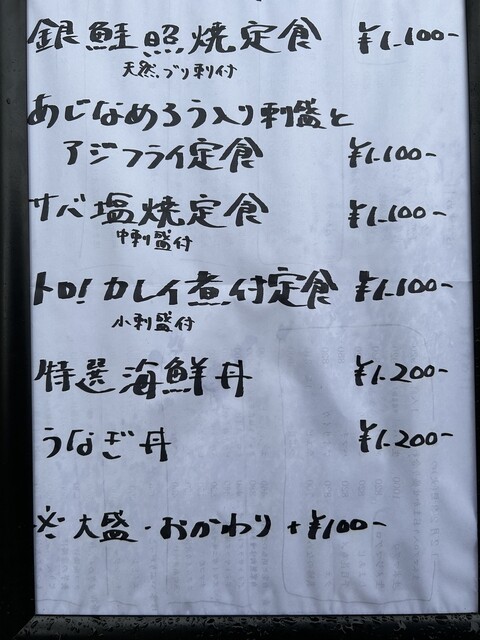 銀鮭照焼定食 ¥1,100-
天然ブリ刺付
あじなめろう入り刺盛と
アジフライ定食 ¥1,100-
サバ塩焼定食 ¥1,100-
中刺盛付
トロ!カレイ煮付定食 ¥1,100-
小刺盛付
特選海鮮丼 ¥1,200-
うなぎ丼 ¥1,200-
※大盛・おかわり+¥100-